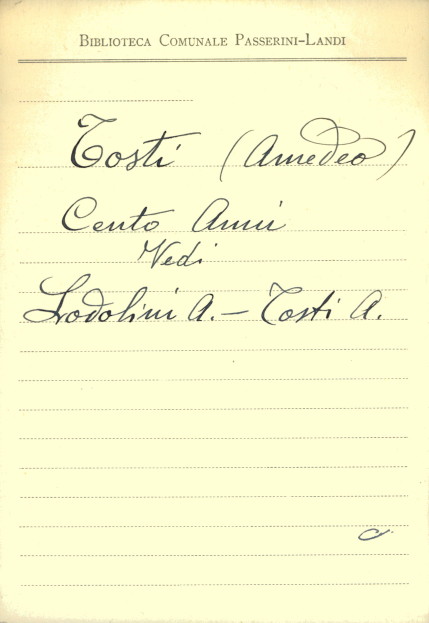 BIBLIOTECA COMUNALE PASSERINI-LANDI
Tosti (Amedeo)
Cento Anni
Vedi
Lodolini A. – Tosti A.